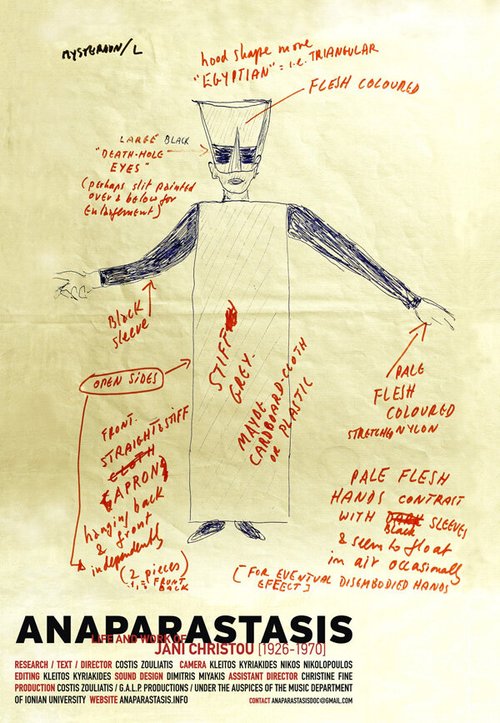 MYSTERION/L
hood shape more
"EGYPTIAN" = i.e. TRIANGULAR
FLESH COLOURED
LARGE BLACK
"DEATH-HOLE
EYES"
(perhaps slit painted
over & below for
Enlargement)
Black
sleeve
OPEN SIDES
STIFF
GREY.
MAYBE
CARDBOARD-CLOTH
OR PLASTIC
PALE
FLESH
COLOURED
STRETCH NYLON
FRONT.
STRAIGHT & STIFF
CLOTH
(APRON)
hanging back
& front
independently
(2 pieces)
FRONT
BACK
PALE FLESH
HANDS CONTRAST
WITH Black SLEEVES
& seem to float
in air occasionally
[FOR EVENTUAL DISEMBODIED HANDS
EFFECT]
ANAPARASTASIS
LIFE AND WORK OF
JANI CHRISTOU [1926-1970]
RESEARCH / TEXT / DIRECTOR COSTIS ZOULIATIS CAMERA KLEITOS KYRIAKIDES NIKOS NIKOLOPOULOS
EDITING KLEITOS KYRIAKIDES SOUND DESIGN DIMITRIS MIYAKIS ASSISTANT DIRECTOR CHRISTINE FINE
PRODUCTION COSTIS ZOULIATIS / G.A.L.P. PRODUCTIONS / UNDER THE AUSPICES OF THE MUSIC DEPARTMENT
OF IONIAN UNIVERSITY WEBSITE ANAPARASTASIS.INFO
CONTACT ANAPARASTASISDOC@GMAIL.COM